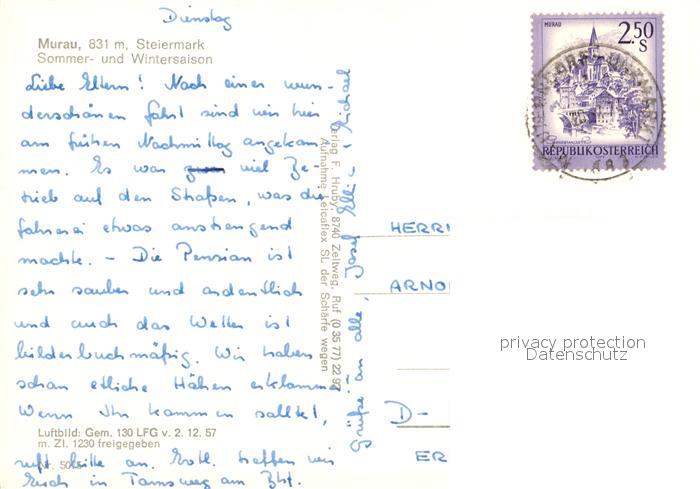 Dienstag
Murau, 831 m, Steiermark
Sommer- und Wintersaison
Liebe Eltern! Nach einer wun-
derschönen Fahrt sind wir hier
am frühen Nachmittag angekom-
men. Es war viel Be-
trieb auf den Straßen, was die
Fahrerei etwas anstrengend
machte. - Die Pension ist
sehr sauber und ordentlich
und auch das Wetter ist
bilderbuchmäßig. Wir haben
schon etliche Höhen erklommen
Wenn Ihr kommen solltet,
Luftbild: Gem. 130 LFG v. 2. 12. 57
m. Zl. 1230 freigegeben
ruft bitte an. Evtl. treffen wir
Nr.
Euch in Tamsweg am Bhf.
Grüße an alle, Josef, Elli + Michael
Verlag F. Hruby, 8740 Zeltweg, Ruf (0 35 77) 22 97
Aufnahme Leicaflex SL der Schärfe wegen
MURAU
2.50
S
REPUBLIK ÖSTERREICH
HERR
ARNO
D-
ER
privacy protection
Datenschutz